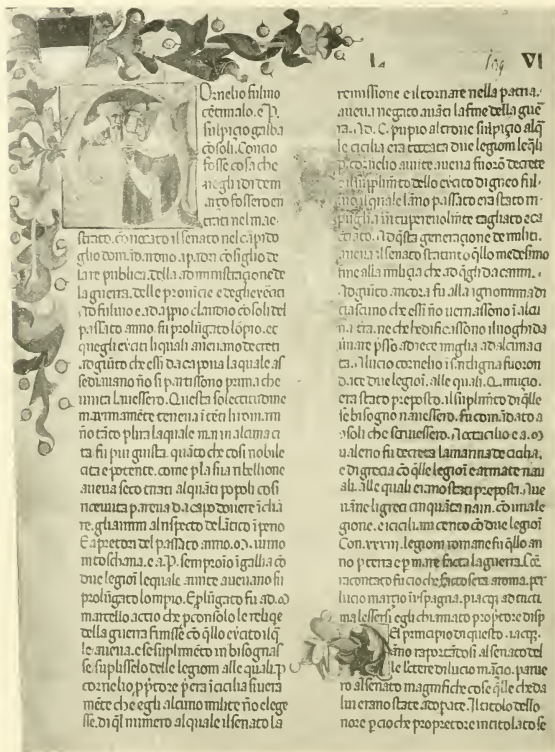 L. 109 VI
Ornelio fulmo
cētimalo. e. P.
sulpigio galba
cōsoli. Concio
fosse cosa che
negli idi dem
arço fossero en
trati nel mae
strato. cōuocato il senato nel cāpido
glio domādorono. a padri cōsiglio de
la re publica. della administracione de
la guerra. delle prouincie e degli exerciti
Ad fuluio e ad appio claudio cōsoli del
passato anno. fu prolūgato lopio. et
quegli exerciti liquali aueano decreti
adgiūto che essi da capoua la quale as
sediauano nō si partissono prima che
uinti lauessero. Questa solecitudine
maximamēte teneua i cēti li romani
nō tāto p ira la quale mai in alcuna ci
ta fu piu giusta. quāto che cosi nobile
cita e potente. come p la sua ribellione
aueua seco tirati alquāti popoli cosi
riceuuta parena da capo douere ichia
re. gli animi al rispecto de lātico ipeno
E a pretori del passato anno. M. iunio
in toschana. e a. P. sempronio i gallia cō
due legioi le quale amite aueuano fu
prolūgato lompio. E plūgato fu ad. M
marcello accio che pconsolo le reliqe
della guerra finisse cō qllo exercito ilqle
le auea. e se suplimēto in bisognas
se. suplisselo delle legioni alle quali. P
cornelio. pptore pera i cicilia fuera
mēte che egli alcuno milite nō elege
sse. di ql numero al quale il senato la
remissione e il tornare nella patria.
aueua negato auāti la fine della guer
ra. Ad. C. sulpicio al
le cicilia era toccata due legioni leqli
p. cornelio auute aueua fuorō decrete
e il supplimēto dello exercito di gneo ful
uio il quale lāno passato era stato in
puglia uitupereuolmēte tagliato e ca
cciato. A d qsta generaçione de militi.
aueua il senato statuito qllo medesimo
fine alla miliçia che ad qgli da canni.
Adgiūto ancora fu alla ignominia di
ciascuno che essi nō uernassono i alcu
na cita. ne che hedificassono il luogho da
uernare psso ad nece miglia ad alcuna ci
ta. A lucio cornelio i sardigna fuoron
date due legioi. alle quali. Q. muçio.
era stato preposto. il suplimēto di qlle
se bisogno nauessero. fu comādato a
cōsoli che scriuessero. A ottacilio e a. M
ualerio fu decreta la marina de cicilia.
e di grecia cō qlle legioi e armate nau
ali. alle quali erano stati preposti. Aue
uāne li greci cinquāta naui. cō una le
gione. e i ciciliani cento cō due legioi
Con. xxiii. legioni romane fu qllo an
no p terra e p mare facta la guerra. Cōe
racontato fu cio che facto era a roma. per
lucio marcio in spagna. piacq. ad tucti
ma lessersi egli chiamato propretore disp
El principio di questo.
āno raportādosi al senato del
le lettere di lucio marcio. parue
ro al senato magnifiche cose qlle che da
lui erano state adopate. Il titolo dello
nore p cio che propretore intitolato se